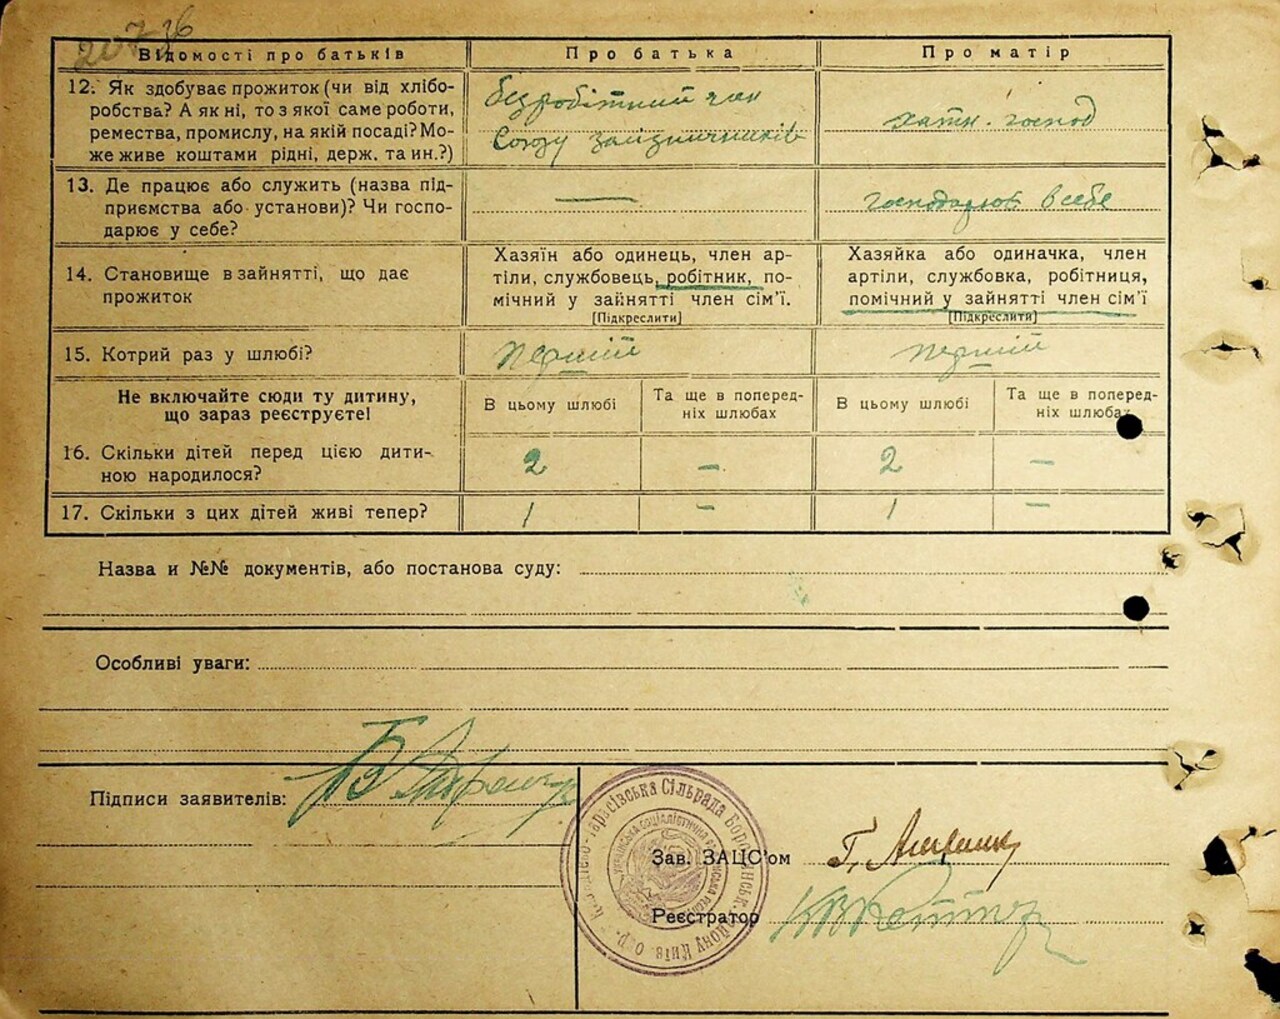 207 36
Відомості про батьків
Про батька
Про матір
12. Як здобуває прожиток (чи від хлібо-
робства? А як ні, то з якої саме роботи,
ремества, промислу, на якій посаді? Мо-
же живе коштами рідні, держ. та ин.?)
безробітний член
Союзу залізничників
хатн. господ
13. Де працює або служить (назва під-
приємства або установи)? Чи госпо-
дарює у себе?
—
господарює в себе
14. Становище в зайнятті, що дає
прожиток
Хазяїн або одинець, член ар-
тіли, службовець, робітник, по-
мічний у зайнятті член сім'ї.
[Підкреслити]
Хазяйка або одиначка, член
артіли, службовка, робітниця,
помічний у зайнятті член сім'ї
[Підкреслити]
15. Котрий раз у шлюбі?
перший
перший
Не включайте сюди ту дитину,
що зараз реєструєте!
В цьому шлюбі
Та ще в поперед-
ніх шлюбах
В цьому шлюбі
Та ще в поперед-
ніх шлюбах
16. Скільки дітей перед цією дити-
ною народилося?
2
–
2
–
17. Скільки з цих дітей живі тепер?
1
–
1
–
Назва и №№ документів, або постанова суду:
Особливі уваги:
Підписи заявителів:
Зав. ЗАЦС'ом
Реєстратор
Сільрада Бородянськ. району Київ. окр.